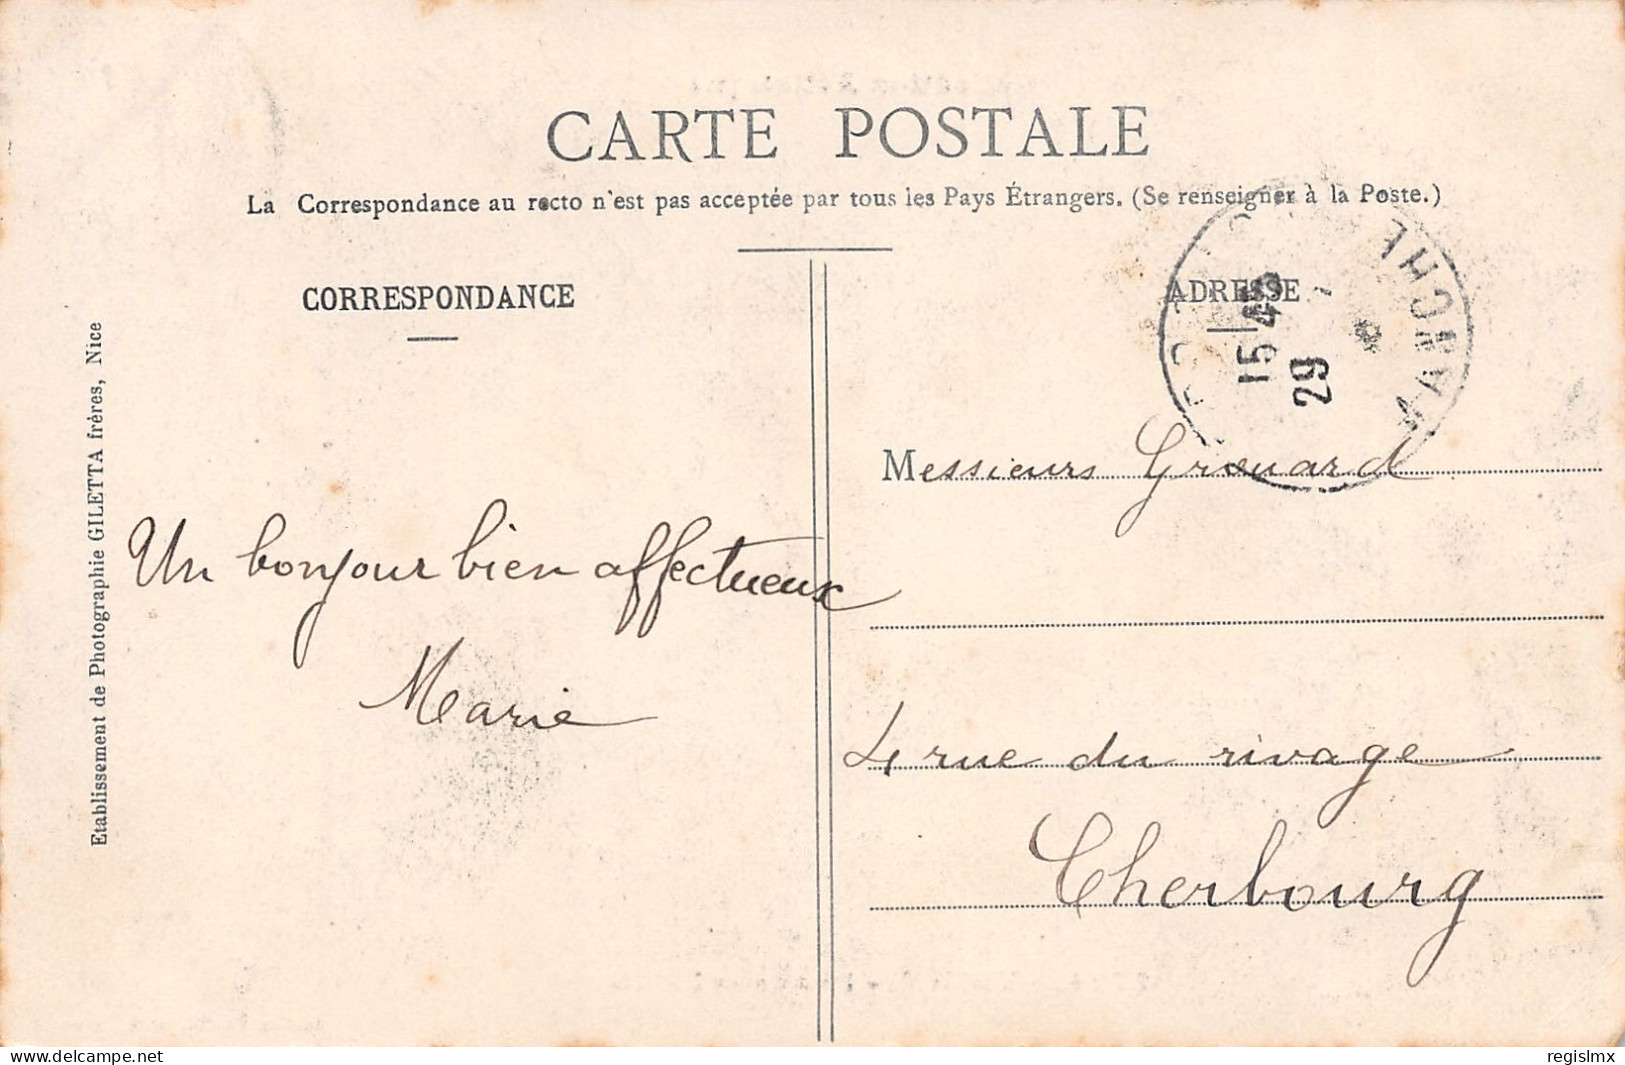 CARTE POSTALE
La Correspondance au recto n'est pas acceptée par tous les Pays Étrangers. (Se renseigner à la Poste.)
CORRESPONDANCE
ADRESSE
MANCHE
15 45
29
Messieurs Grouard
Un bonjour bien affectueux
Marie
4 rue du rivage
Cherbourg
Etablissement de Photographie GILETTA frères, Nice
delcampe.net
regislmx